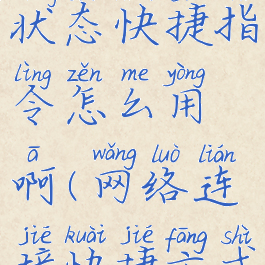 状态快捷指
lìng zěn me yòng
令怎么用
ā wǎng luò lián
啊(网络连
jiē kuài jié fāng shì
接快捷方式